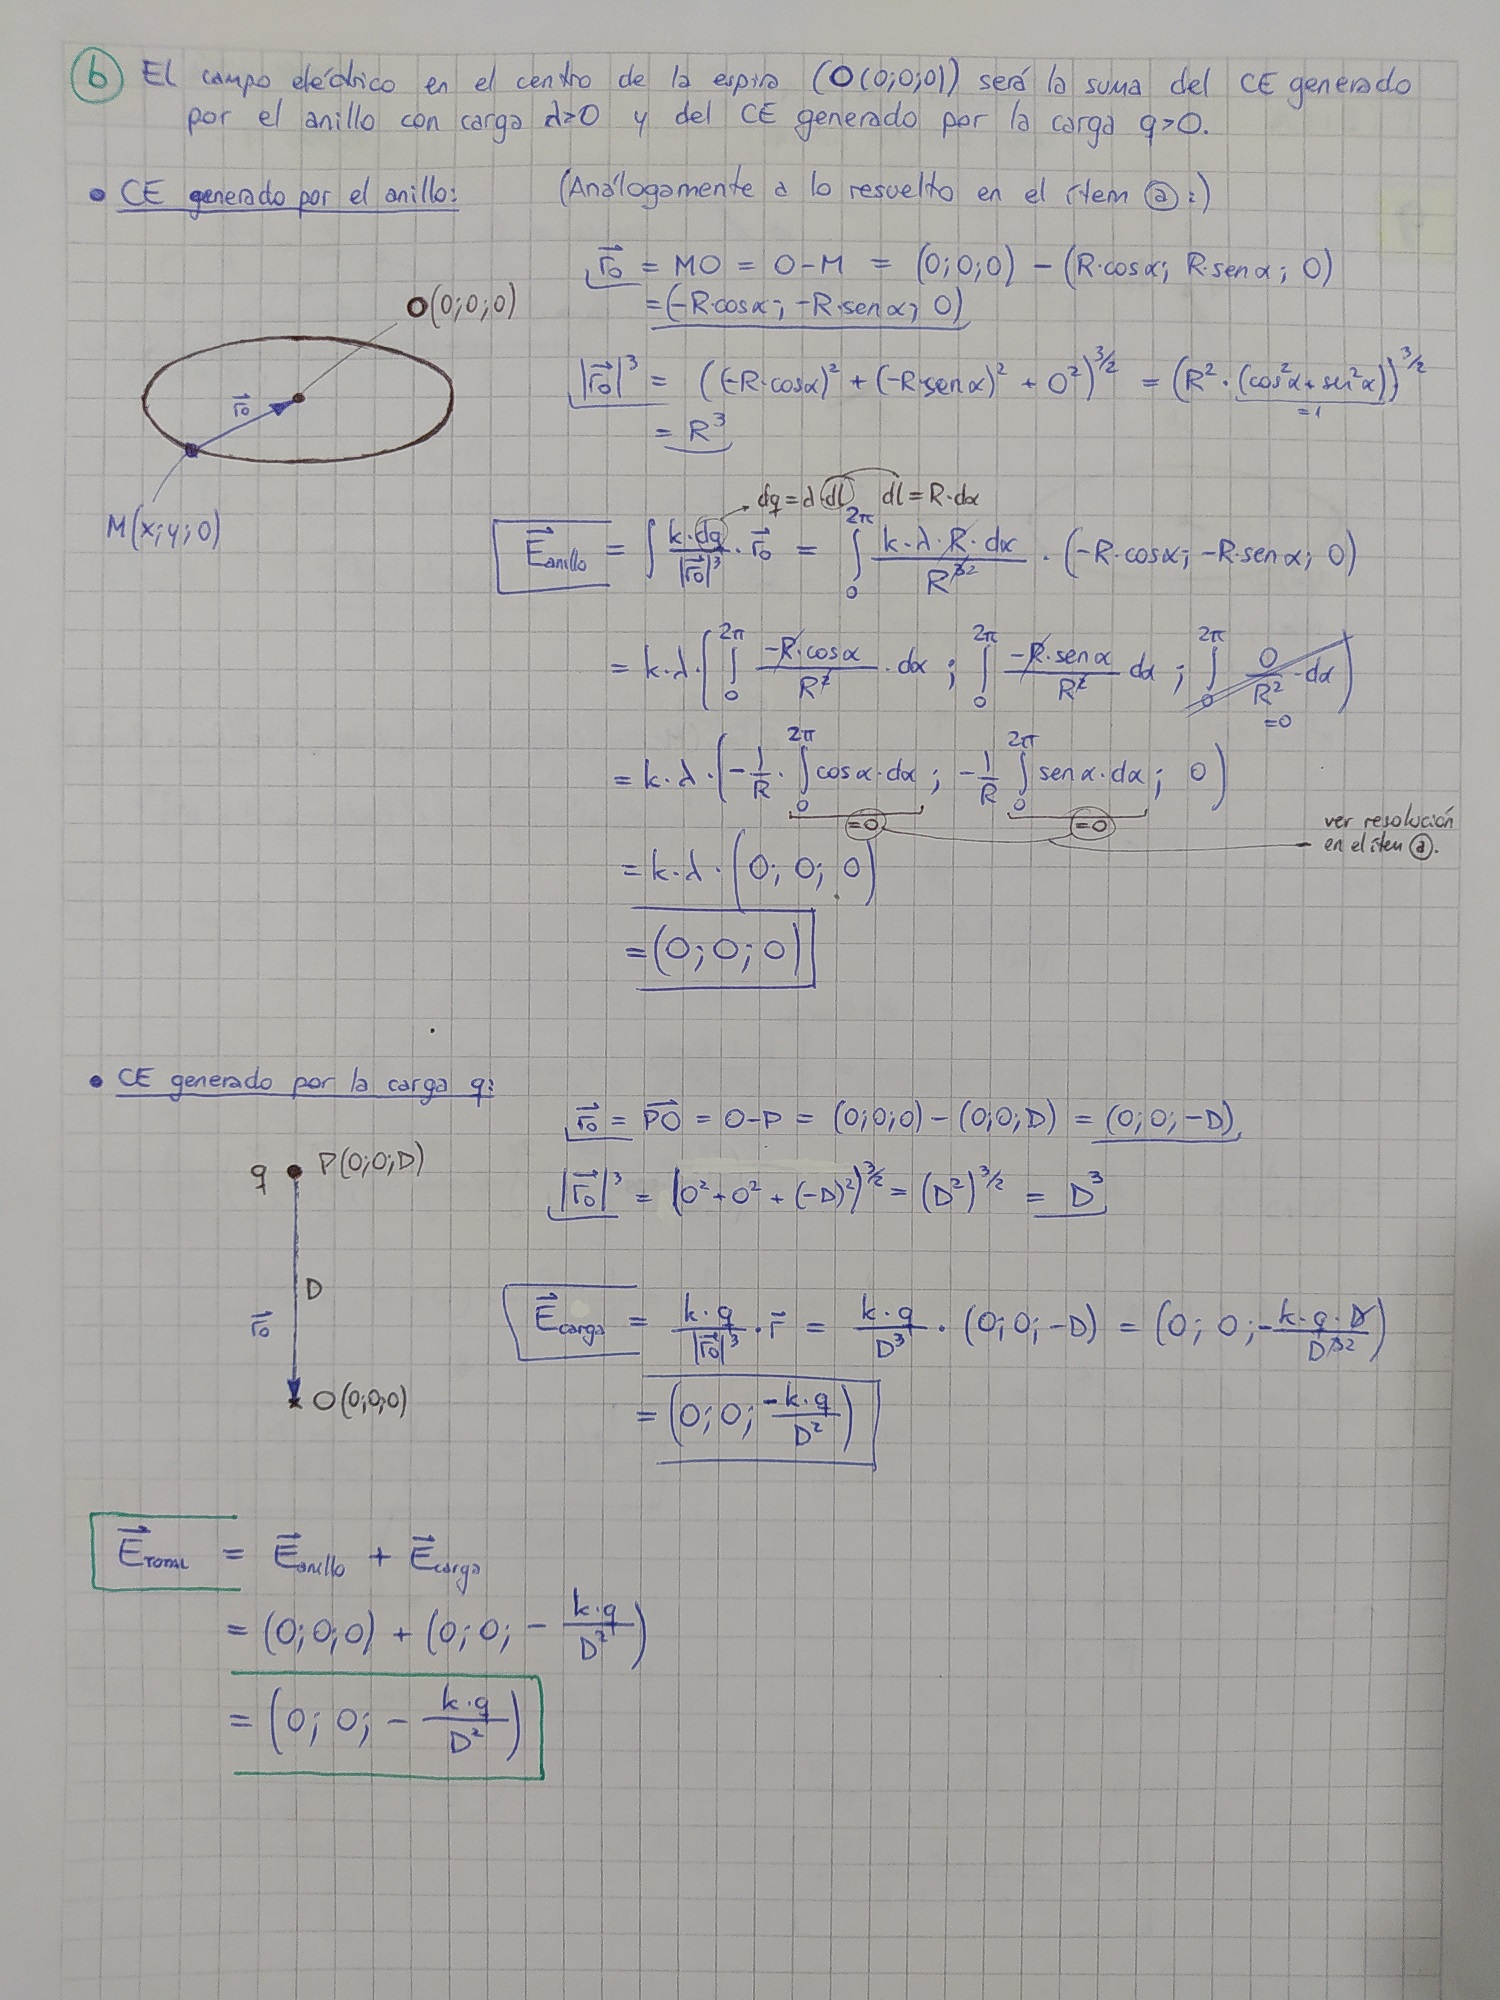 b El campo eléctrico en el centro de la espira (O(0;0;0)) será la suma del CE generado
por el anillo con carga λ>0 y del CE generado por la carga q>0.
• CE generado por el anillo: (Análogamente a lo resuelto en el ítem ⓐ:)
r⃗₀ = MO = O-M = (0;0;0) - (R·cosα; R·senα; 0)
= (-R·cosα; -R·senα; 0)
O(0;0;0)
|r⃗₀|³ = ((-R·cosα)² + (-R·senα)² + 0²)^3/2 = (R²·(cos²α+sen²α))^3/2
=1
r⃗₀
= R³
dq=λ·dl dl=R·dα
M(x;y;0)
E⃗anillo = ∫ k·dq/|r⃗₀|³ · r⃗₀ = ∫₀^2π k·λ·R·dα/R³² · (-R·cosα; -R·senα; 0)
= k·λ·(∫₀^2π -R·cosα/R² · dα ; ∫₀^2π -R·senα/R² dα ; ∫₀^2π 0/R² · dα)
=0
= k·λ·(-1/R · ∫₀^2π cosα·dα ; -1/R ∫₀^2π senα·dα ; 0)
=0 =0
ver resolución
en el ítem ⓐ.
= k·λ·(0; 0; 0)
= (0; 0; 0)
• CE generado por la carga q:
r⃗₀ = PO⃗ = O-P = (0;0;0) - (0;0;D) = (0; 0; -D)
q P(0;0;D)
|r⃗₀|³ = (0²+0²+(-D)²)^3/2 = (D²)^3/2 = D³
D
r⃗₀
E⃗carga = k·q/|r⃗₀|³ · r⃗ = k·q/D³ · (0; 0; -D) = (0; 0; -k·q·D/D³²)
O(0;0;0)
= (0; 0; -k·q/D²)
E⃗TOTAL = E⃗anillo + E⃗carga
= (0;0;0) + (0; 0; - k·q/D²)
= (0; 0; - k·q/D²)